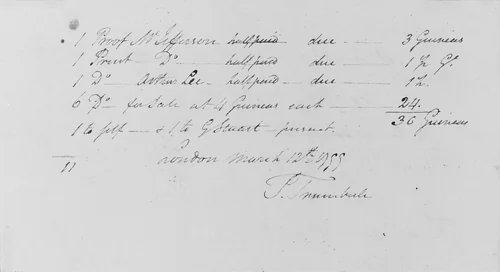 1 Proof Mr Jefferson half paid due — 3 Guineas
1 Print Do half paid due — 1½ Gs
1 Do Arthur Lee — half paid — due — 1½
6 Do for Sale at 4 Guineas each — 24
1 to self — & 1 to G Stuart — present. 36 Guineas
11
London March 12th
J. Trumbull